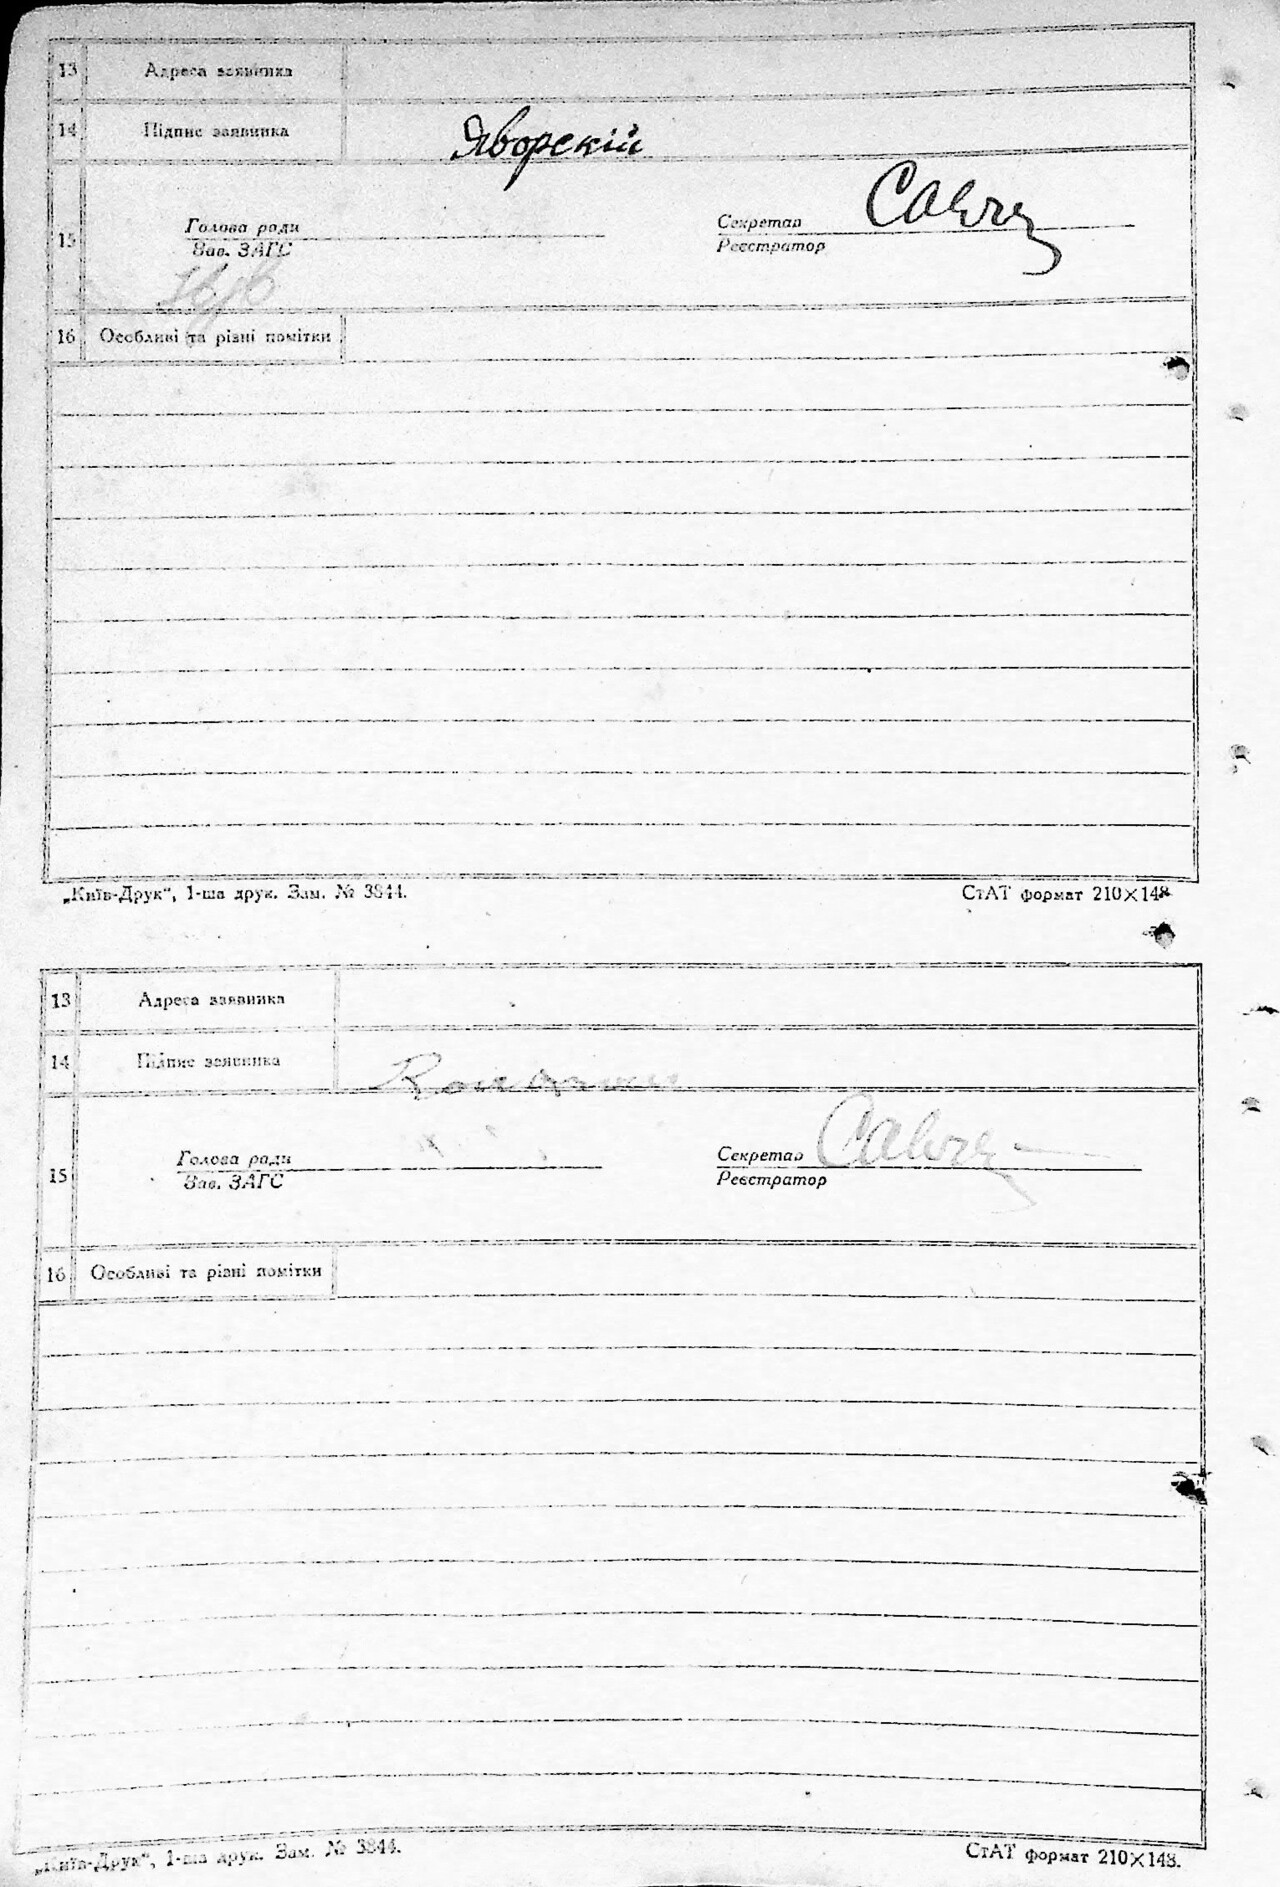 13 Адреса заявника
14 Підпис заявника Яворскій
15 Голова ради Секретар
Зав. ЗАГС Реєстратор
16 Особливі та різні помітки
„Київ-Друк“, 1-ша друк. Зам. № 3844. СтАТ формат 210×148
13 Адреса заявника
14 Підпис заявника
15 Голова ради Секретар
Зав. ЗАГС Реєстратор
16 Особливі та різні помітки
„Київ-Друк“, 1-ша друк. Зам. № 3844. СтАТ формат 210×148.